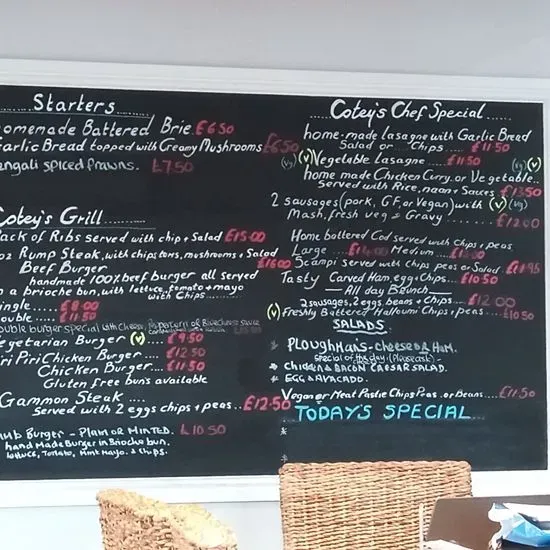 Starters
omemade Battered Brie £6.50
arlic Bread topped with Creamy Mushrooms £6.50
engali spiced Prawns. £7.50
Cotey's Grill
ack of Ribs served with chip & Salad £15.00
oz Rump Steak, with chips toms, mushrooms & Salad £16.00
Beef Burger
handmade 100% beef burger all served
n a brioche bun, with lettuce, tomato & mayo
with Chips
ingle £8.00
ouble £11.50
ouble burger special with cheese,
egetarian Burger (v) £9.50
iri Piri Chicken Burger £12.50
Chicken Burger £11.50
Gluten free buns available
Gammon Steak
served with 2 eggs chips & peas £12.50
mb Burger - Plain or Minted. £10.50
hand Made Burger in Brioche bun.
lettuce, Tomato, Mint Mayo. & Chips.
Cotey's Chef Special
home-made lasagne with Garlic Bread
Salad or Chips £11.50
(vg) (v) Vegetable Lasagne £11.50 (vg) (v)
home made Chicken Curry. or Vegetable
served with Rice, naan & Sauces £13.50
2 sausages (pork, GF or Vegan) with (v) (vg)
Mash, fresh veg & Gravy £12.00
Home battered Cod served with Chips & peas
Large Medium
Scampi served with chips peas or Salad £11.95
Tasty Carved Ham, egg & Chips £10.50
All day Brunch
2 sausages, 2 eggs, beans & Chips £12.00
(v) Freshly Battered Halloumi Chips & peas £10.50
SALADS
* PLOUGHMAN'S - CHEESE & HAM.
special of the day. (Please ask)
* CHICKEN & BACON CAESAR SALAD.
* EGG & AVACADO.
Vegan or Meat Pastie Chips Peas or Beans £11.50
TODAY'S SPECIAL
*
*